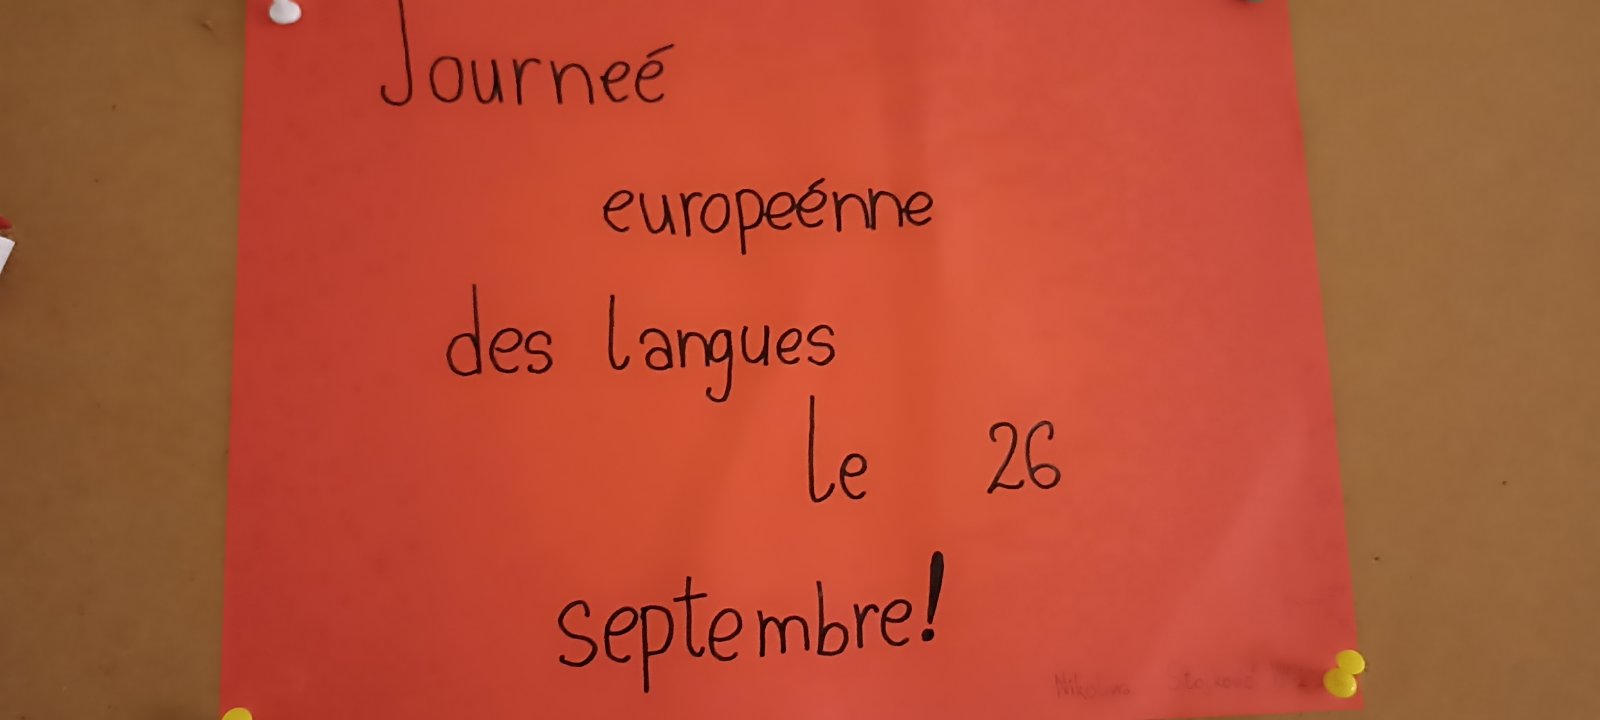 Journeé
europeénne
des langues
le 26
septembre!
Nikolina